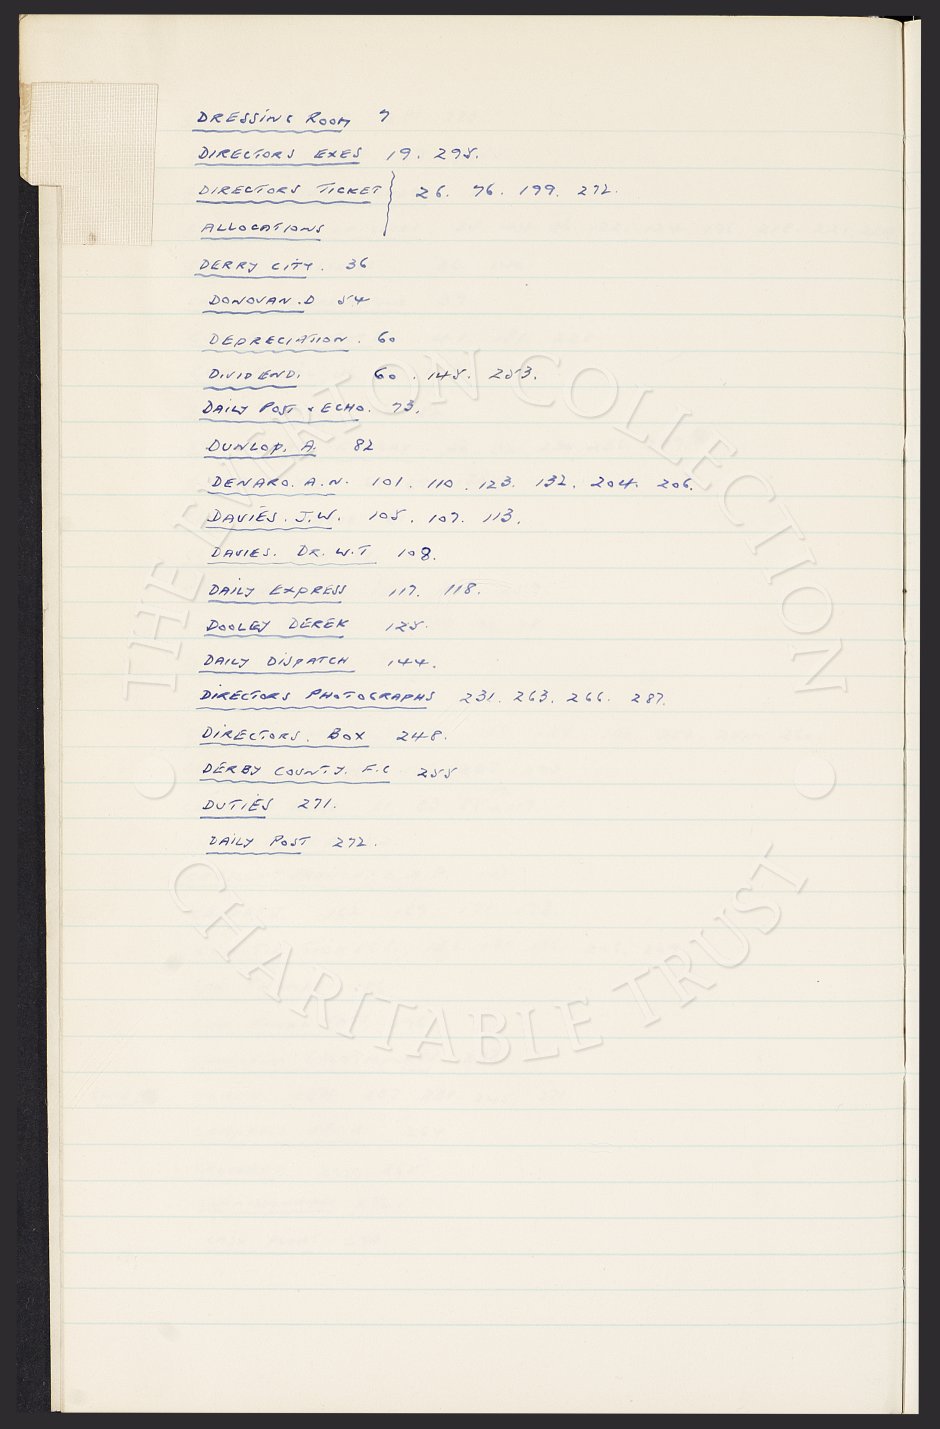 DRESSING ROOM 7
DIRECTORS EXES 19. 295.
DIRECTORS TICKET } 26. 76. 199. 272.
ALLOCATIONS
DERRY CITY. 36
DONOVAN. D 54
DEPRECIATION. 60
DIVIDEND. 60. 145. 253.
DAILY POST & ECHO. 73.
DUNLOP. A. 82
DENARO. A.N. 101. 110. 123. 132. 204. 206.
DAVIES. J.W. 105. 107. 113.
DAVIES. DR. W.T 108.
DAILY EXPRESS 117. 118.
DOOLEY DEREK 125.
DAILY DISPATCH 144.
DIRECTORS PHOTOGRAPHS 231. 263. 266. 287.
DIRECTORS. BOX 248.
DERBY COUNTY. F.C 255
DUTIES 271.
DAILY POST 272.
• THE EVERTON COLLECTION •
CHARITABLE TRUST